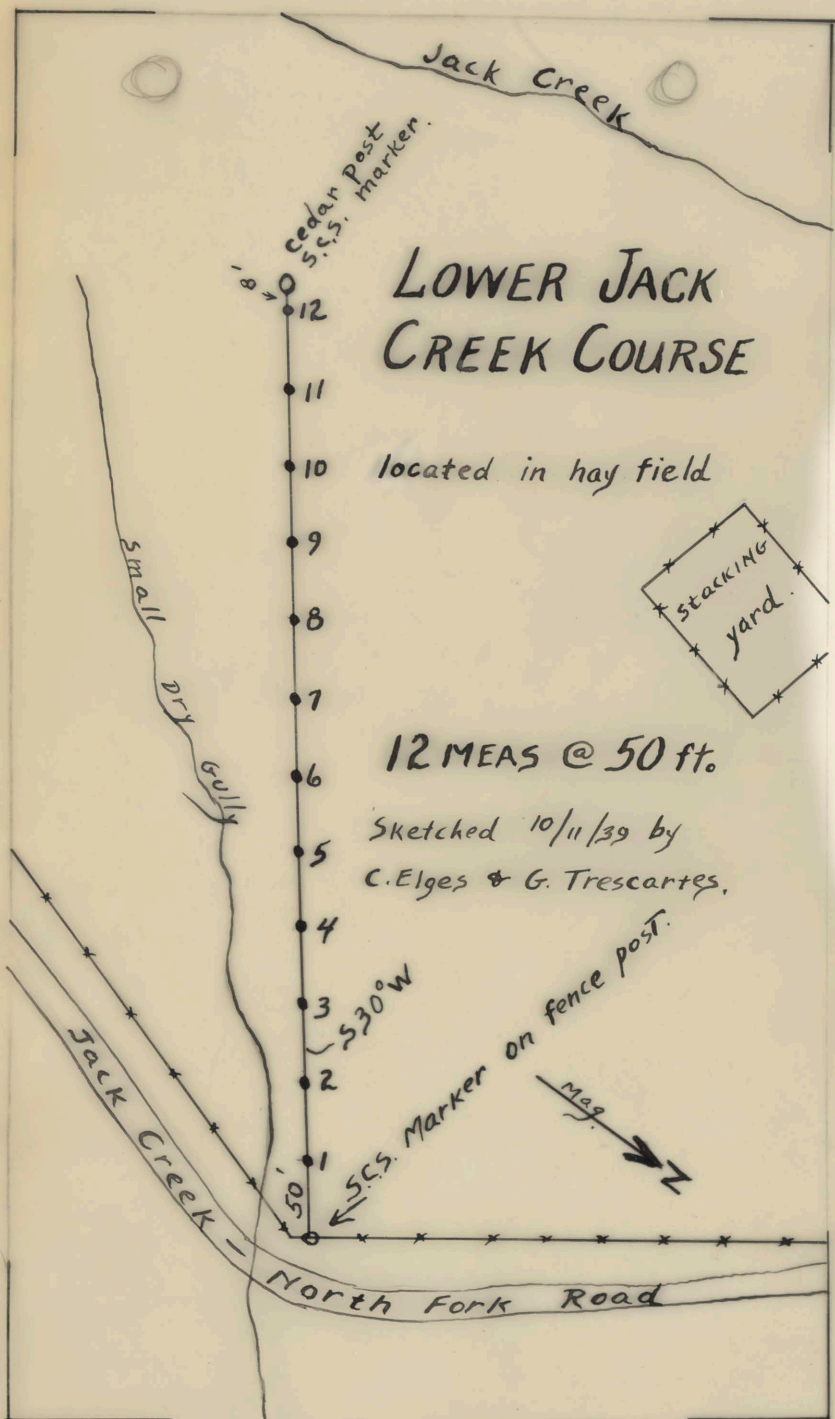 Jack Creek
cedar post
s.c.s. marker.
8'
LOWER JACK
CREEK COURSE
12
11
10
9
8
7
6
5
4
3
2
1
located in hay field
stacking
yard.
Small Dry Gully
12 MEAS @ 50 ft.
Sketched 10/11/39 by
C. Elges & G. Trescartes.
S30°W
S.C.S. Marker on fence post.
Mag.
N
50'
Jack Creek – North Fork Road